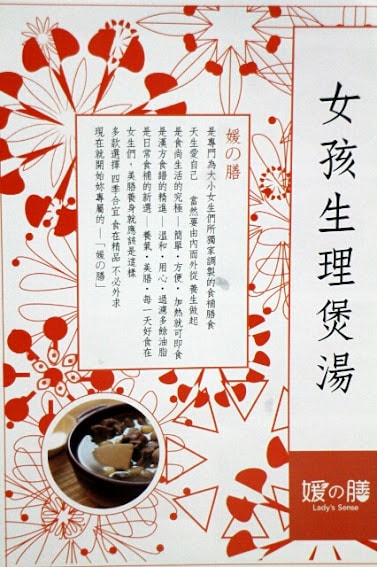 女孩生理煲湯
媛の膳
是專門為大小女生們所獨家調製的食補膳食
天生愛自己 當然要由內而外從養生做起
是食尚生活的究極—簡單・方便・加熱就可即食
是漢方食譜的精進—溫和・用心・過濾多餘油脂
是日常食補的新選—養氣・美膳・每一天好食在
女生們，美膳養身就應該是這樣
多款選擇 四季合宜 食在精品 不必外求
現在就開始妳專屬的—「媛の膳」
媛の膳
Lady's Sense